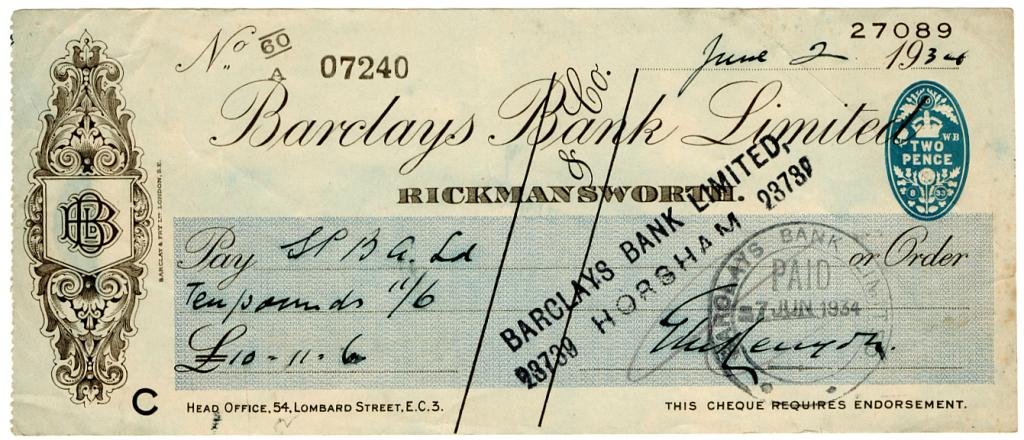 27089
No 60/A 07240
June 2 1934
Barclays Bank Limited
& Co.
RICKMANSWORTH.
WB
TWO PENCE
8 33
BB
BARCLAY & FRY LTD LONDON, S.E.
Pay S P B A. Ld or Order
Ten pounds 11/6
£10-11-6
BARCLAYS BANK LIMITED,
HORSHAM
23739 23739
BARCLAYS BANK LIMITED
PAID
7 JUN 1934
C
HEAD OFFICE, 54, LOMBARD STREET, E.C.3.
THIS CHEQUE REQUIRES ENDORSEMENT.